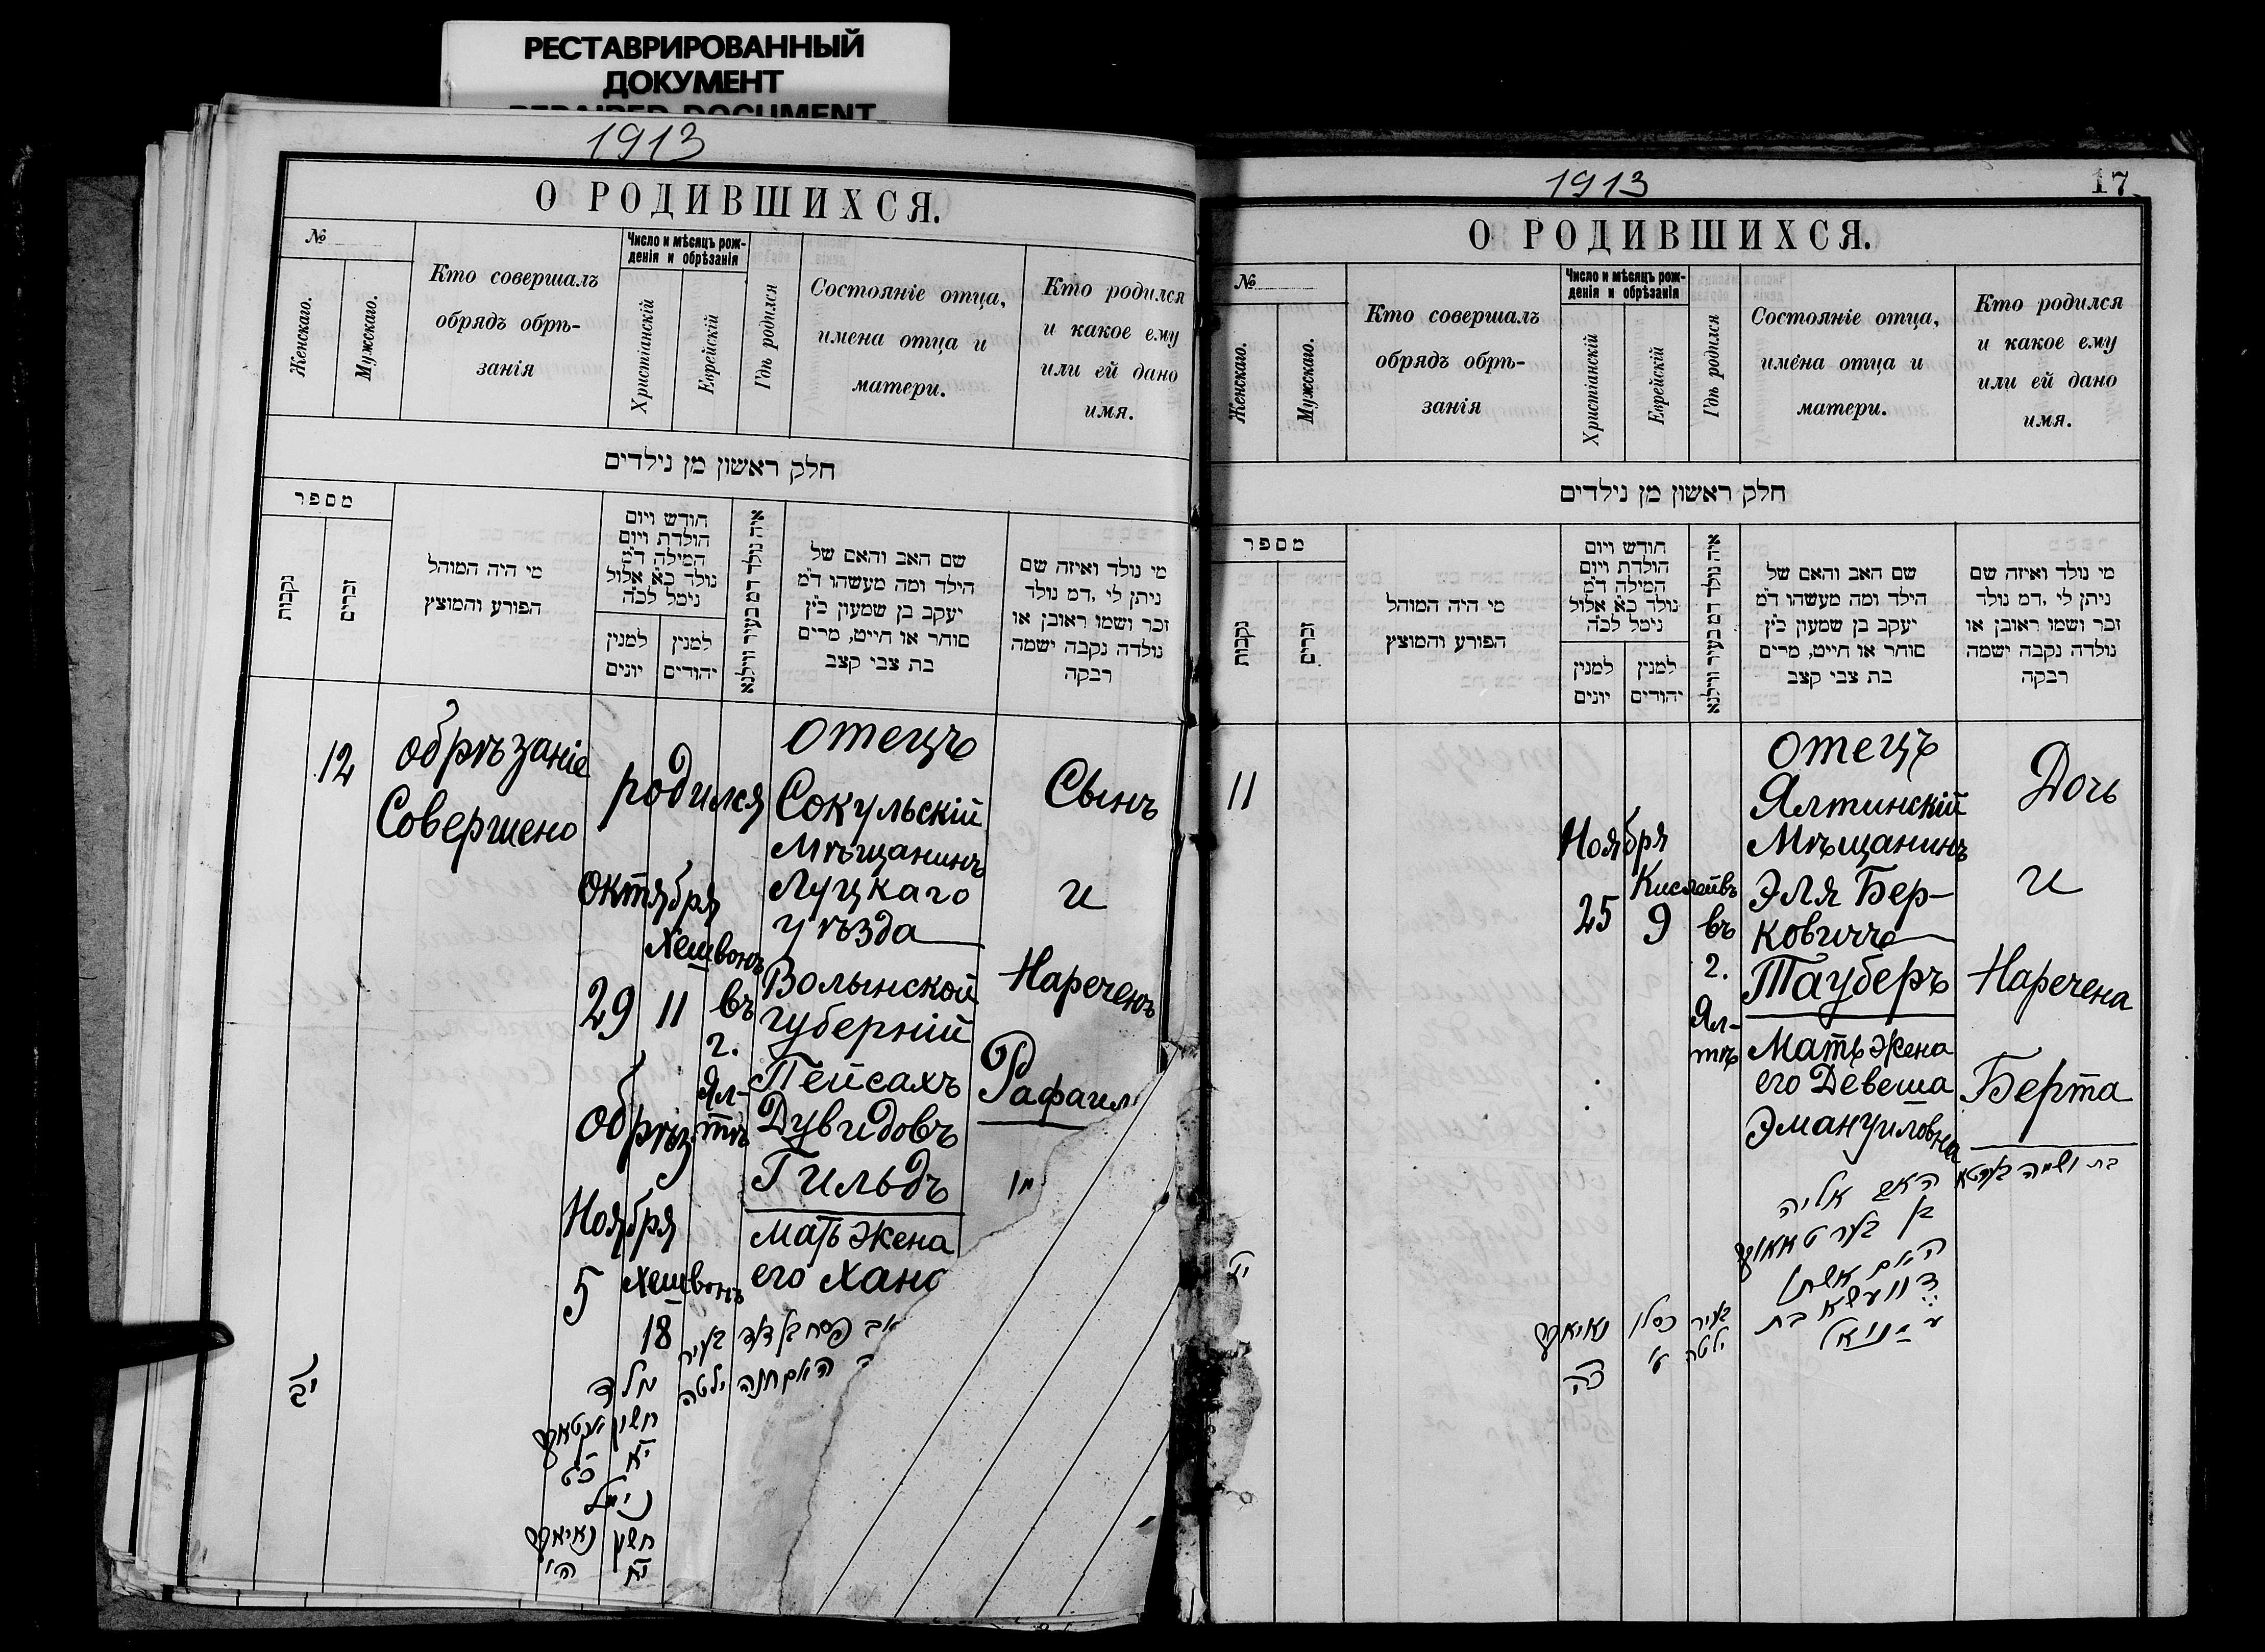 РЕСТАВРИРОВАННЫЙ
ДОКУМЕНТ
REPAIRED DOCUMENT
1913
О РОДИВШИХСЯ.
№
Женскаго.
Мужскаго.
Кто совершалъ
обрядъ обрѣ-
занія
Число и мѣсяцъ рож-
денія и обрѣзанія
Христіанскій
Еврейскій
Гдѣ родился
Состояніе отца,
имена отца и
матери.
Кто родился
и какое ему
или ей дано
имя.
חלק ראשון מן נילדים
מספר
נקבות
זכרים
מי היה המוהל
הפורע והמוצץ
חודש ויום
הולדת ויום
המילה ד"מ
נולד כ"א אלול
נימל לכ"ה
למנין
יונים
למנין
יהודים
איה נולד דמ בעיר ווילנא
שם האב והאם של
הילד ומה מעשהו ד"מ
יעקב בן שמעון כ"ץ
סוחר או חייט, מרים
בת צבי קצב
מי נולד ואיזה שם
ניתן לי ,דמ נולד
זכר ושמו ראובן או
נולדה נקבה ישמה
רבקה
12
обрѣзаніе
Совершено
родился
октября
Хешвонъ
29 11 въ
г.
Ял-
тѣ
обрѣз.
Ноября
5 Хешвонъ
18
отецъ
Сокульскій
Мѣщанинъ
Луцкаго
уѣзда
Волынской
губерній
Пейсахъ
Дувидовъ
Гильдъ
Мать жена
его Хана
Сынъ
и
Нареченъ
Рафаил
יב
נולד
חשון
יא כט
נימול
חשון
יח ה
בעיר
ילטה
אב פסח בן דוד
האם חנה
1913
17
О РОДИВШИХСЯ.
№
Женскаго.
Мужскаго.
Кто совершалъ
обрядъ обрѣ-
занія
Число и мѣсяцъ рож-
денія и обрѣзанія
Христіанскій
Еврейскій
Гдѣ родился
Состояніе отца,
имена отца и
матери.
Кто родился
и какое ему
или ей дано
имя.
חלק ראשון מן נילדים
מספר
נקבות
זכרים
מי היה המוהל
הפורע והמוצץ
חודש ויום
הולדת ויום
המילה ד"מ
נולד כ"א אלול
נימל לכ"ה
למנין
יונים
למנין
יהודים
איה נולד דמ בעיר ווילנא
שם האב והאם של
הילד ומה מעשהו ד"מ
יעקב בן שמעון כ"ץ
סוחר או חייט, מרים
בת צבי קצב
מי נולד ואיזה שם
ניתן לי ,דמ נולד
זכר ושמו ראובן או
נולדה נקבה ישמה
רבקה
11
Ноября
Кислейвъ
25 9 въ
г.
Ял-
тѣ
отецъ
Ялтинскій
Мѣщанинъ
Эля Бер-
ковичъ
Тауберъ
Мать жена
его Девеша
Эмануиловна
Дочь
и
Наречена
Берта
בת ושמה בערטא
האב אליה
בן בער טאובער
האם אשתו
דוועשא בת
עמנואל
בעיר
ילטה
כסלו
כה